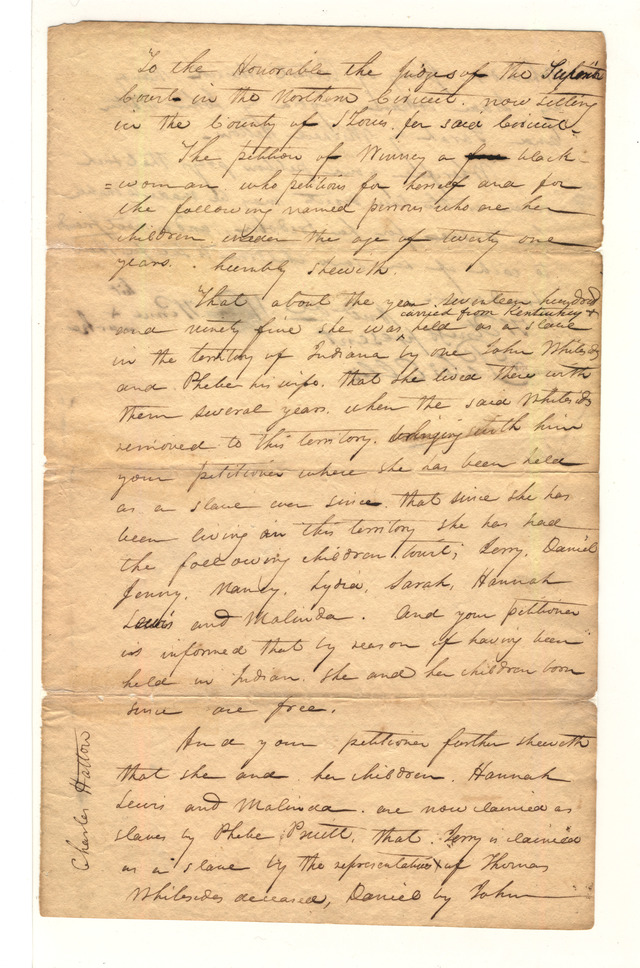 To the Honorable the Judges of the Superior
Court in the Northern Circuit. now sitting
in the County of St Louis. for said Circuit.
The petition of Winney a black
woman who petitions for herself and for
the following named persons who are her
children under the age of twenty one
years. humbly sheweth.
That about the year seventeen hundred
carried from Kentuckey &
and ninety five she was held as a slave
in the territory of Indiana by one John Whitesides
and Phebe his wife. that she lived there with
them several years. when the said Whitesides
removed to this territory. bringing with him
your petitioner where she has been held
as a slave ever since. that since she has
been living in this territory she has had
the following children towit; Jerry, Daniel
Jenny, Nancy, Lydia, Sarah, Hannah
Lewis and Malinda. And your petitioner
is informed that by reason of having been
held in Indian. she and her children born
since are free.
And your petitioner further sheweth
that she and her children. Hannah
Lewis and Malinda. are now claimed as
slaves by Phebe Pruett. that Jerry is claimed
as a slave by the representatives of Thomas
Whitesides deceased, Daniel by John
Charles Hatton